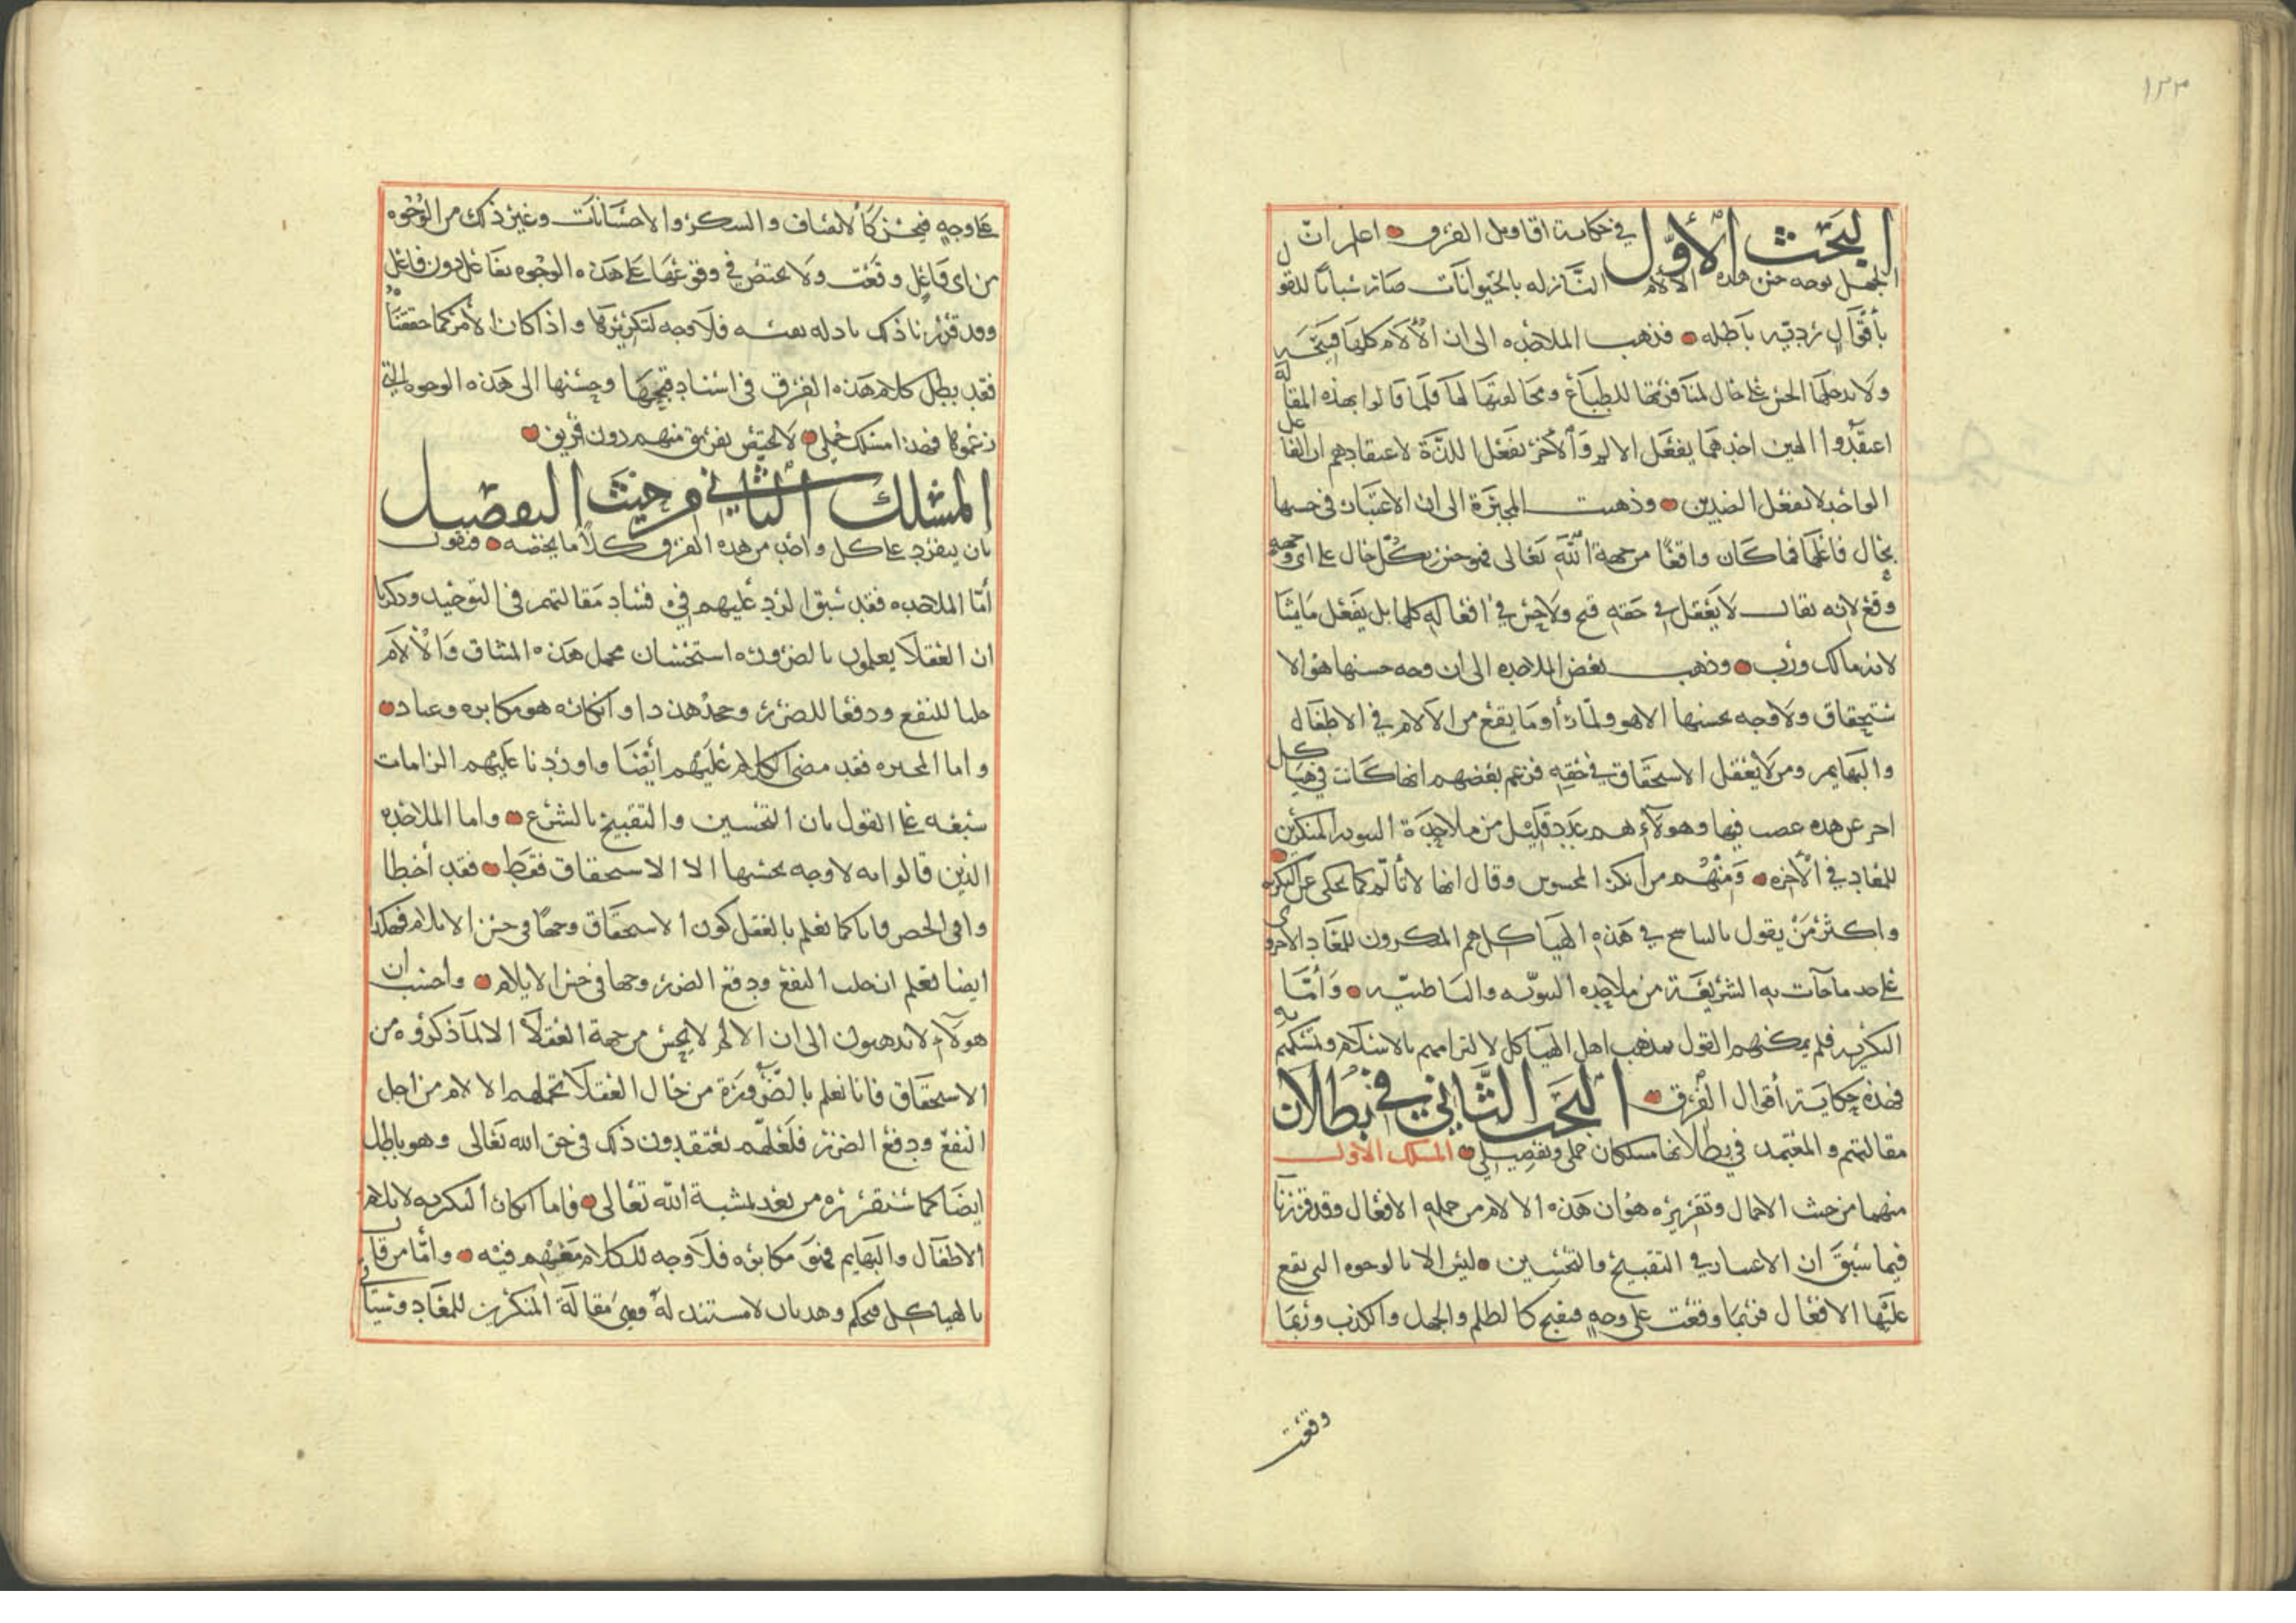 ١٣٣
البحث الأول في حكاية اقاويل الفرق اعلم انّ
الجهل بوجه حسن هذه الآلام النازله بالحيوانات صار سبباً للقول
بأقوال رديّه باطله فذهب الملاحده الى ان الآلام كلها قبيحه
ولا مدخل للحسن على حال لمنافرتها للطباع ومخالفتها لها فلما قالوا بهذه المقالة
اعتقدوا الهين احدهما يفعل الالم والآخر يفعل اللذة لاعتقادهم ان الفاعل
الواحد لا يفعل الضدين وذهبت المجبرة الى ان الاعتبار في حسنها
بحال فاعلها فما كان واقعًا من جهة الله تعالى فهو حسن بكل حال على اي وجه
وقع لانه تعالى لا يعقل في حقه قبح ولا حسن في افعاله كلها بل يفعل ما يشا
لانه مالك ورب وذهب بعض الملاحده الى ان وجه حسنها هو الا
ستحقاق ولا وجه بحسنها الا هو ولما رأوا ما يقع من الآلام في الاطفال
والبهايم ومن لا يعقل الاستحقاق في حقه فزعم بعضهم انها كانت في هياكل
اخر غير هذه عصت فيها وهولآء هم عدد قليل من ملاحدة الثنويه المنكرين
للمعاد في الآخره ومنهم من انكر المحسوس وقال انها لا تألم كما يحكى عن البكريه
واكثر من يقول بالتناسخ في هذه الهياكل هم المنكرون للمعاد الاخروي
على حد ما جآت به الشريعة من ملاحده الثنويّه والباطنيّه وأمّا
البكريه فلم يمكنهم القول بمذهب اهل الهياكل لالتزامهم بالاسلام وتمسكهم به
فهذه حكاية أقوال الفرق البحث الثاني في بطلان
مقالتهم والمعتمد في بطلانها مسلكان جملي وتفصيلي المسلك الاول
منهما من حيث الاجمال وتقريره هو ان هذه الالام من جمله الافعال وقد قررنا
فيما سبق ان الاعتبار في التقبيح والتحسين ليس الا بالوجوه التي تقع
عليها الافعال فربما وقعت على وجهٍ فتقبح كالظلم والجهل والكذب وربما
وقعت
على وجهٍ فيحسن كالانصاف والشكر والاحسانات وغير ذلك من الوجوه
من اي فاعل وقعت ولا يختص في وقوعها على هذه الوجوه بفاعل دون فاعل
وقد قررنا ذلك بادله بعينه فلا وجه لتكريرها واذا كان الأمر كما حققناه
فقد بطل كلام هذه الفرق في اسناد قبحها وحسنها الى هذه الوجوه التي
زعموها فهذا مسلك جملي لا يختص بفريق منهم دون فريق
المسلك الثاني من حيث التفصيل
بان يفرد على كل واحد من هذه الفرق كلاما يخصه فنقول
أمّا الملاحده فقد سبق الرد عليهم في فساد مقالتهم في التوحيد وذكرنا
ان العقلا يعلمون بالضروره استحسان تحمل هذه المشاق والآلام
جلبا للنفع ودفعًا للضرر وجحد هذا وانكاره هو مكابره وعناد
واما المجبره فقد مضى الكلام عليهم أيضًا واوردنا عليهم الزامات
شنيعه على القول بان التحسين والتقبيح بالشرع واما الملاحده
الذين قالوا انه لا وجه بحسنها الا الاستحقاق فقط فقد أخطا
وا في الحصر فانا كما نعلم بالعقل كون الاستحقاق وجهًا في حسن الايلام فهكذا
ايضا نعلم ان جلب النفع ودفع الضرر وجها في حسن الايلام واحسب ان
هولآء لا يذهبون الى ان الالم لا يحسن من جهة العقلآ الا لما ذكروه من
الاستحقاق فانا نعلم بالضرورة من حال العقلا تحملهم الالام من اجل
النفع ودفع الضرر فلعلهم يعتقدون ذلك في حق الله تعالى وهو باطل
ايضا كما سنقرره من بعد بمشية الله تعالى فاما انكار البكريه لايلام
الاطفال والبهايم فهو مكابره فلا وجه للكلام معهم فيه وأمّا من قال
بالهياكل فتحكم وهذيان لا مستند له وهي مقالة المنكرين للمعاد وسيأتي